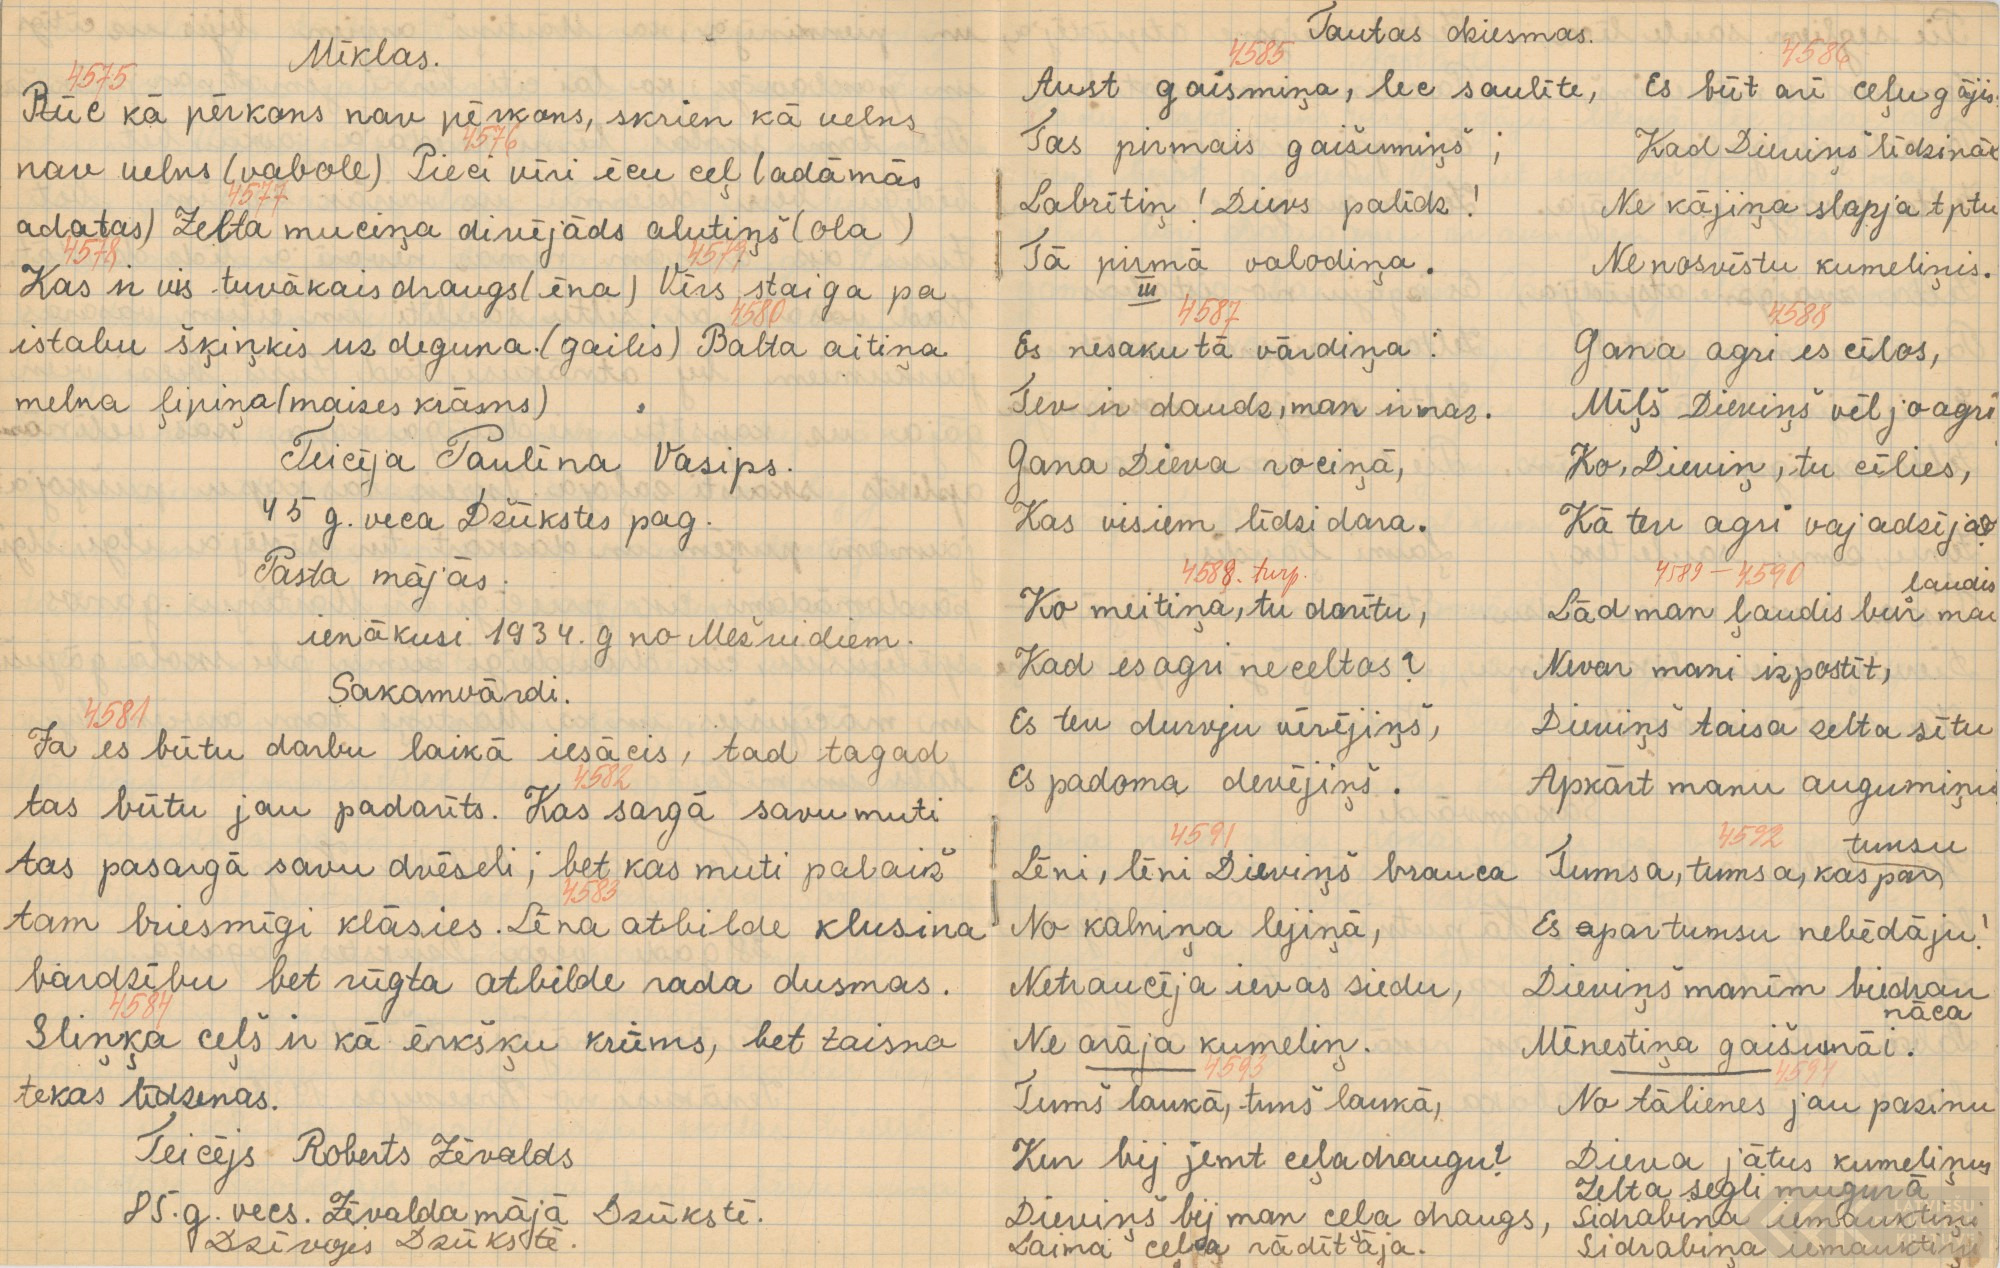 Mīklas.
4575
Rūc kā pērkons nav pērkons, skrien kā velns
4576
nav velns (vabole) Pieci vīri ēcu ceļ (adāmās
4577
adatas) Zelta muciņa divējāds alutiņš (ola)
4578 4579
Kas ir vis tuvākais draugs (ēna) Vīrs staiga pa
4580
istabu šķiņķis uz deguna. (gailis) Balta aitiņa
melna ļipiņa (maizes krāsns)
Teicēja Paulīna Vasips.
45 g. veca Džūkstes pag.
Pasta mājās.
ienākusi 1934. g no Mežvidiem.
Sakamvārdi.
4581
Ja es būtu darbu laikā iesācis, tad tagad
4582
tas būtu jau padarīts. Kas sargā savu muti
tas pasargā savu dvēseli; bet kas muti palaiž
4583
tam briesmīgi klāsies. Lēna atbilde klusina
bardzību bet rūgta atbilde rada dusmas.
4584
Sliņķa ceļš ir kā ērkšķu krūms, bet taisna
tekas līdzenas.
Teicējs Roberts Zēvalds
85. g. vecs. Zēvalda mājā Dzūkstē.
Dzīvojis Dzūkstē.
Tautas dziesmas.
4585
Aust gaismiņa, lec saulīte,
Tas pirmais gaišumiņš;
Labrītiņ! Dievs palīdz!
Tā pirmā valodiņa.
III
4586
Es būt arī ceļu gājis
Kad Dieviņš līdzinās
Ne kājiņa slapja tptu
Ne nosvīstu kumeliņis.
4587
Es nesaku tā vārdiņa:
Tev ir daudz, man ir maz.
Gana Dieva rociņā,
Kas visiem līdzi dara.
4588
Gana agri es cēlos,
Mīļš Dieviņš vēl jo agri
Ko, Dieviņ, tu cēlies,
Kā tev agri vajadzēja?
4588. turp.
Ko meitiņa, tu darītu,
Kad es agri neceltos?
Es tev durvju vērējiņš,
Es padoma devējiņš.
4589 – 4590
laudis
Lād man ļaudis bur man
Nevar mani izpostīt,
Dieviņš taisa zelta sētu
Apkārt manu augumiņu
4591
Lēni, lēni Dieviņš brauca
No kalniņa lejiņā,
Netraucēja ievas ziedu,
Ne arāja kumeliņ.
4592
tumsu
Tumsa, tumsa, kas par
Es apar tumsu nebēdāju!
Dieviņš manīm biedrau
nāca
Mēnestiņa gaišumāi.
4593
Tumš laukā, tumš laukā,
Kur bij jemt ceļa draugu?
Dieviņš bij man ceļa draugs,
Laima ceļa rādītāja.
4594
No tālienes jau pazinu
Dieva jātus kumeliņus
Zelta segli mugurā
Sidrabiņa iemauktiņi
Sidrabiņa iemauktiņi